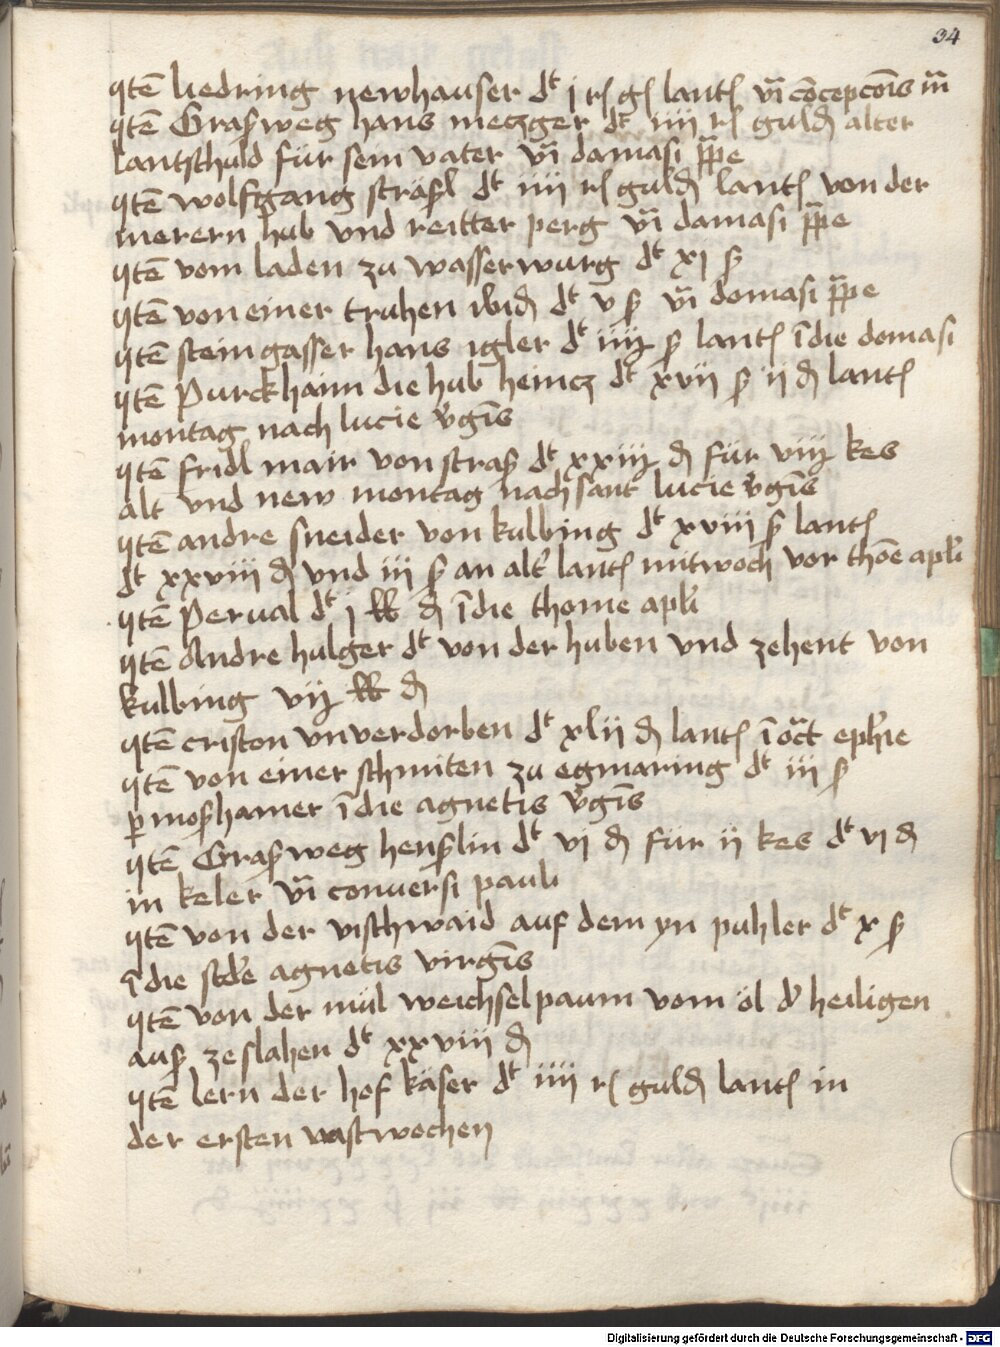 34
Itē liedring newhauser dt j rh gl lantl vī cōcepcōis m̄
Itē Graſweg hans meczger dt iiij rh guldn alter
lantschuld für sein vater vī damasi p̄pe
Itē wolfgang sträsl dt iiij rh guldn lantl von der
merern hub vnd reitter perg vī damasi p̄pe
Itē vom laden zu wasserwurg dt xj ß
Itē von einer truhen ibid dt v ß vī domasi p̄pe
Itē steingasser hans igler dt iiij ß lantl ī die domasi
Itē Purckhaim die hub heincz dt xvij ß ij dn lantl
montag nach lucie v̓gīs
Itē fridl mair von straß dt xxiij dn für viij kes
alt vnd new montag nach sant lucie v̓gīs
Itē andre sneider von kulbing dt xviii ß lantl
dt xxviii dn vnd iij ß an alt̓ lantl mitwoch vor thōe apl̓i
Itē Perual dt j lb dn ī die thome apl̓i
Itē Andre hulger dt von der huben vnd zehent von
kulbing vij lb dn
Itē criston vnuerdorben dt xlij dn lantl ī oct̄ eph̓ie
Itē von einer schmiten zu egmaring dt iij ß
p̱ moßhamer ī die agnetis v̓gīs
Itē Graſweg henßlin dt vj dn für ij kes dt vj dn
in keler vī conuersi pauli
Itē von der vischwaid auf dem yn puhler dt x ß
ī die scd̓e agnetis virgīs
Itē von der mül weichselpaum vom öl d̓ heiligen
auß zeslahen dt xxviii dn
Itē lern der hof käser dt iiij rh guldn lantl in
der ersten vastwochen
Digitalisierung gefördert durch die Deutsche Forschungsgemeinschaft - DFG